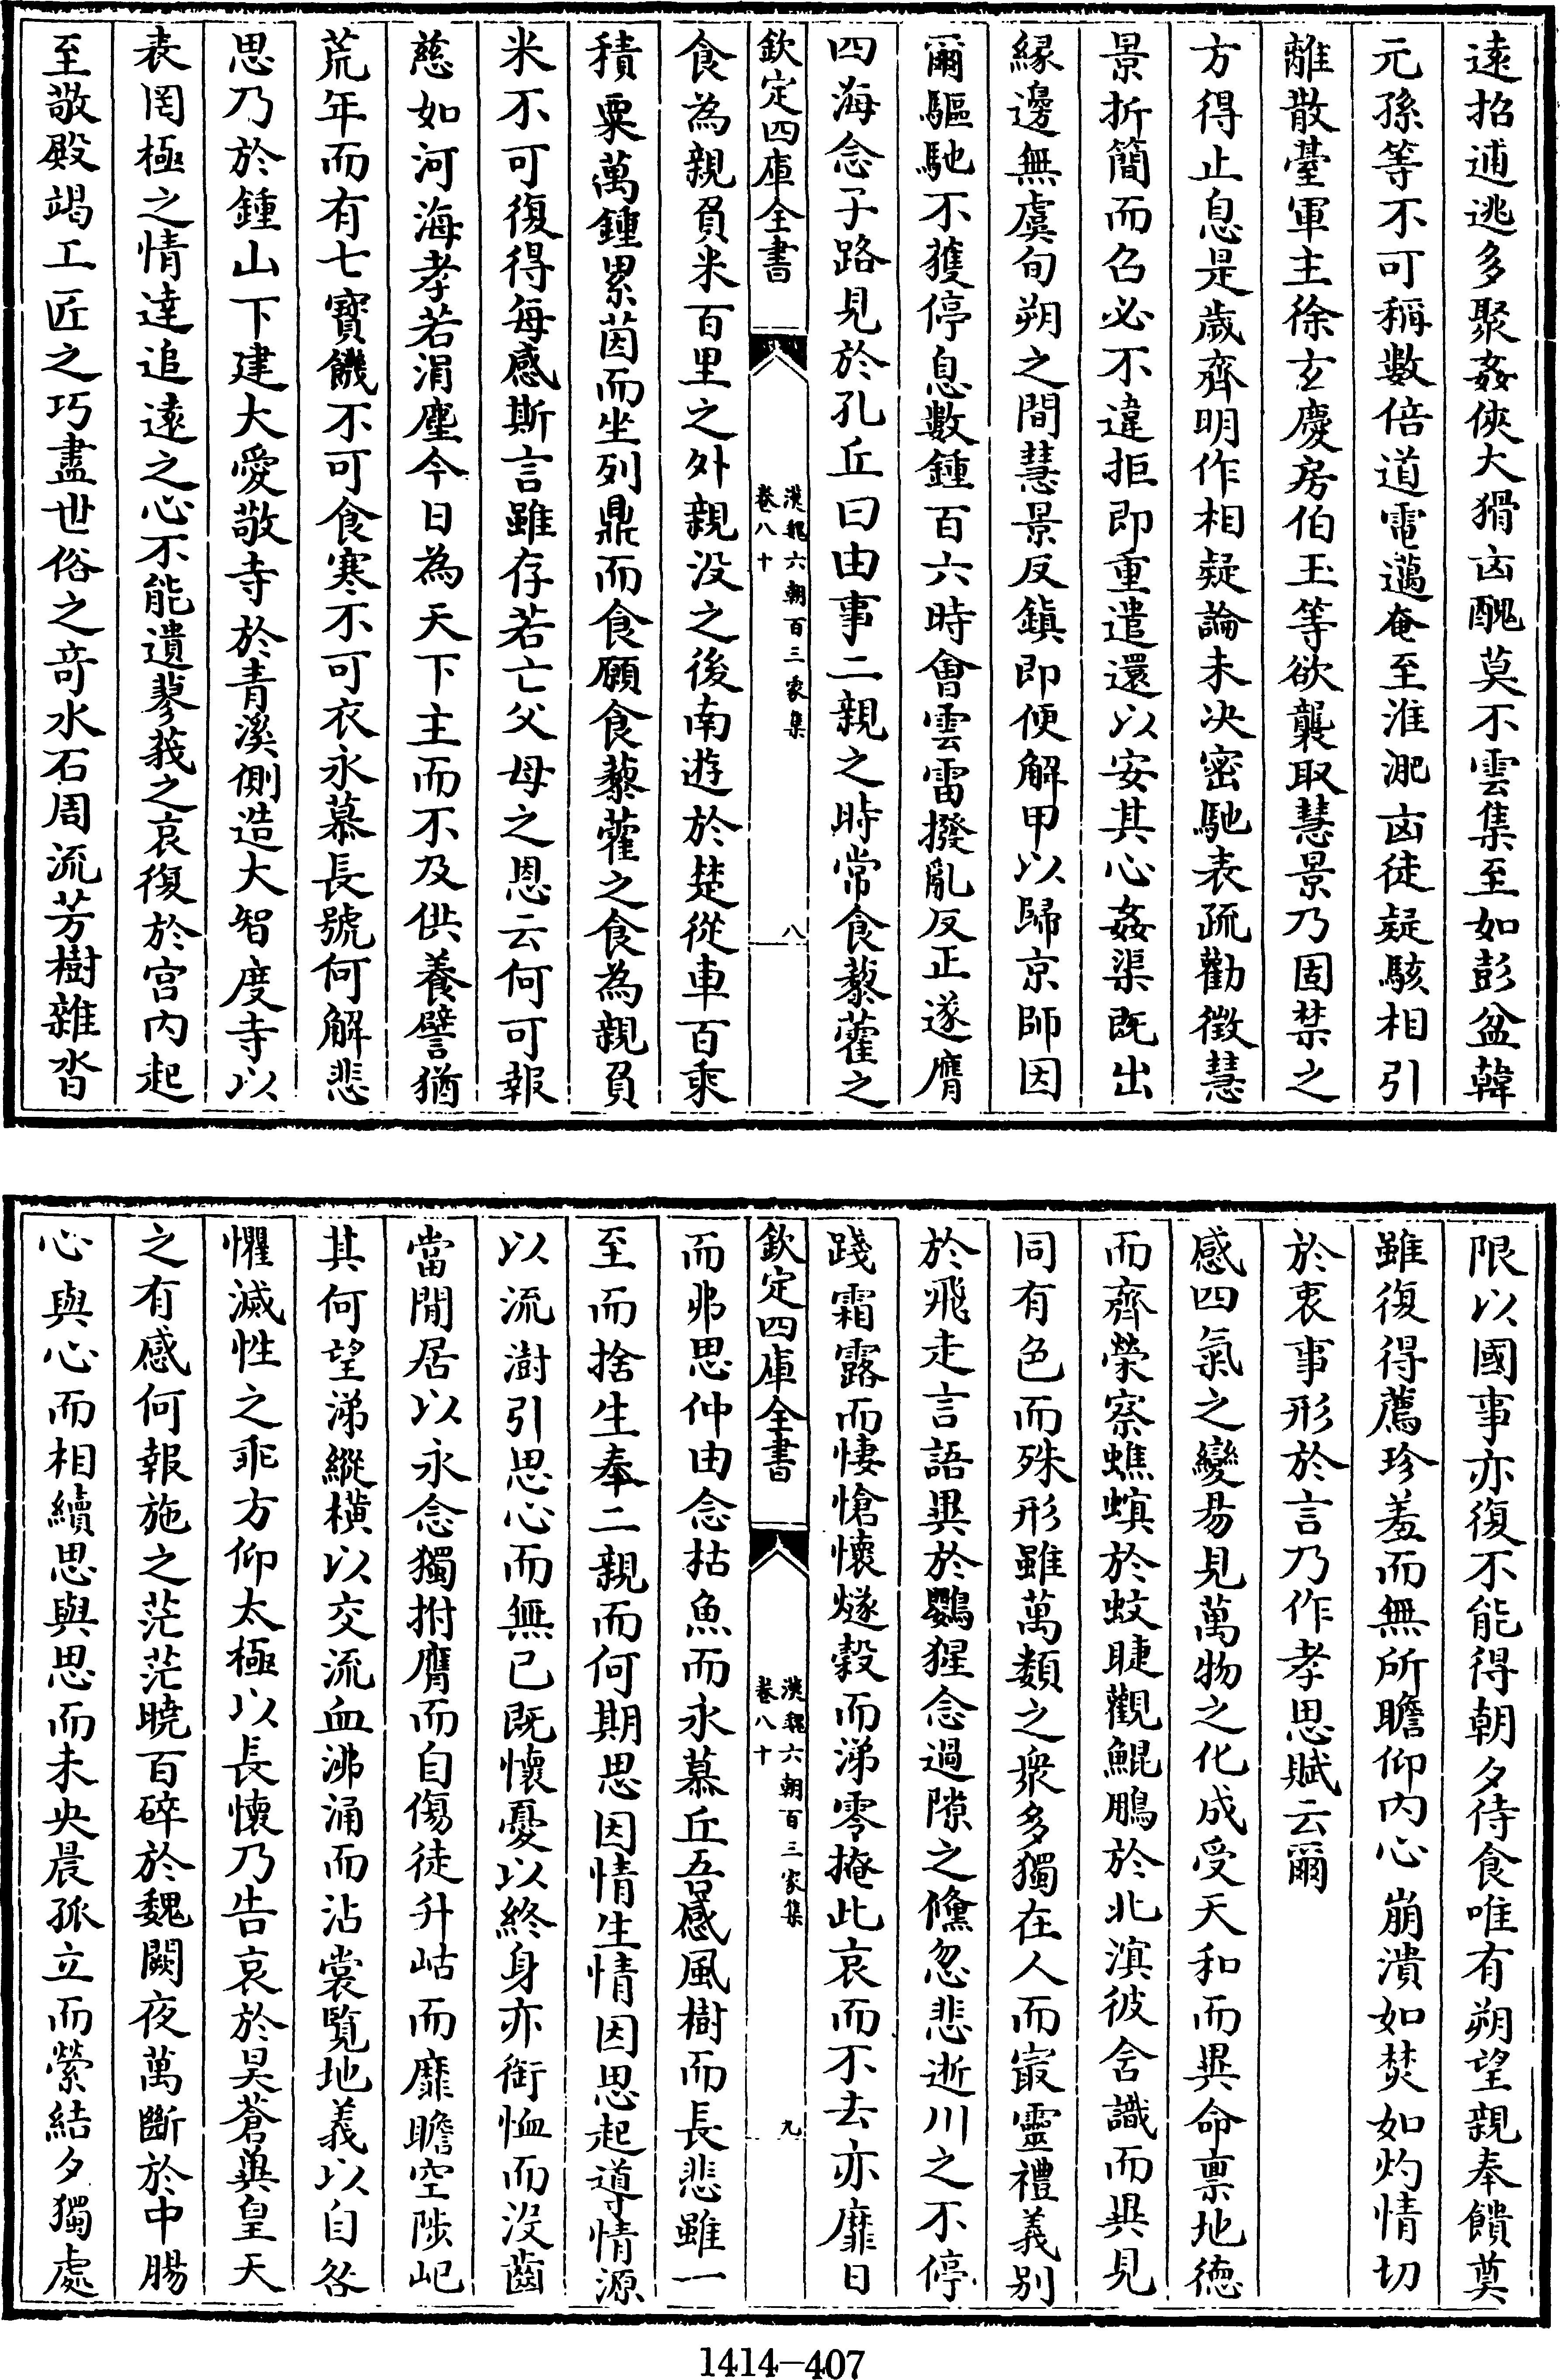 遠招逋逃多聚姦俠大猾凶醜莫不雲集至如彭盆韓
元孫等不可稱數倍道電邁奄至淮淝凶徒疑駭相引
離散臺軍主徐玄慶房伯玉等欲襲取慧景乃固禁之
方得止息是歲齊明作相疑論未决密馳表疏勸徵慧
景折簡而召必不違拒即重遣還以安其心姦渠既出
縁邊無虞旬朔之間慧景反鎮即便解甲以歸京師因
爾驅馳不獲停息數鍾百六時會雲雷撥亂反正遂膺
四海念子路見於孔丘曰由事二親之時常食藜藿之
欽定四庫全書
漢魏六朝百三家集
卷八十
八
食為親負米百里之外親没之後南遊於楚從車百乘
積粟萬鍾累茵而坐列鼎而食願食藜藿之食為親負
米不可復得每感斯言雖存若亡父母之恩云何可報
慈如河海孝若涓塵今日為天下主而不及供養譬猶
荒年而有七寳饑不可食寒不可衣永慕長號何解悲
思乃於鍾山下建大愛敬寺於青溪側造大智度寺以
表罔極之情達追逺之心不能遺蓼莪之哀復於宫内起
至敬殿竭工匠之巧盡世俗之竒水石周流芳樹雜沓
限以國事亦復不能得朝夕侍食唯有朔望親奉饋奠
雖復得薦珍羞而無所瞻仰内心崩潰如焚如灼情切
於衷事形於言乃作孝思賦云爾
感四氣之變易見萬物之化成受天和而異命禀地徳
而齊榮察蟭螟於蚊睫觀鯤鵬於北溟彼含識而異見
同有色而殊形雖萬類之衆多獨在人而㝡靈禮義别
於飛走言語異於鸚猩念過隙之儵忽悲逝川之不停
踐霜露而悽愴懷燧榖而涕零掩此哀而不去亦靡日
欽定四庫全書
漢魏六朝百三家集
卷八十
九
而弗思仲由念枯魚而永慕丘吾感風樹而長悲雖一
至而捨生奉二親而何期思因情生情因思起導情源
以流澍引思心而無已既懷憂以終身亦銜恤而没齒
當閒居以永念獨拊膺而自傷徒升岵而靡瞻空陟屺
其何望涕縱横以交流血沸涌而沾裳覧地義以自咎
懼滅性之乖方仰太極以長懷乃告哀於昊蒼與皇天
之有感何報施之茫茫曉百碎於魏闕夜萬斷於中腸
心與心而相續思與思而未央晨孤立而縈結夕獨處
1414-407